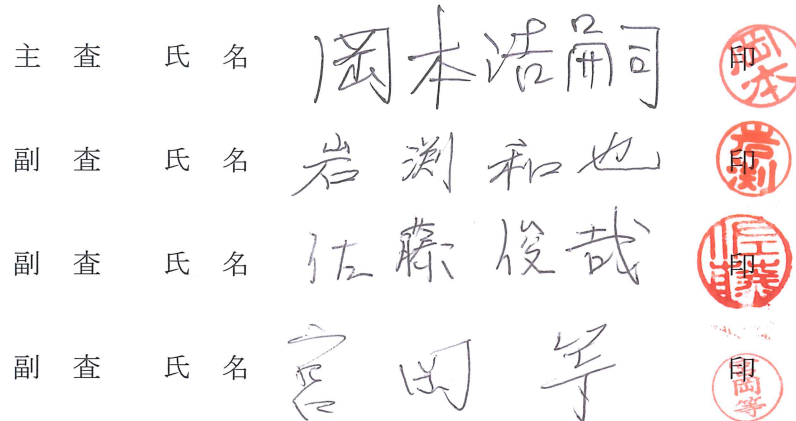 主査 氏名 岡本浩嗣 印 岡本
副査 氏名 岩渕和也 印 岩渕
副査 氏名 佐藤俊哉 印 佐藤
副査 氏名 宮岡等 印 宮岡等